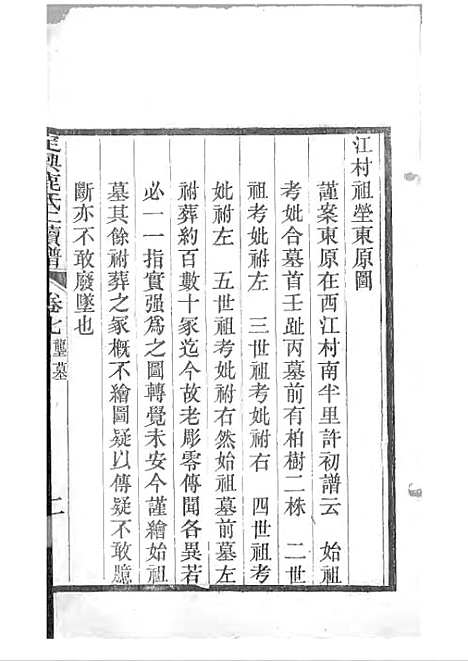 江村祖塋東原圖
謹案東原在西江村南半里許初譜云 始祖
考妣合墓首壬趾丙墓前有柏樹二株 二世
祖考妣祔左 三世祖考妣祔右 四世祖考
妣祔左 五世祖考妣祔右然始祖墓前墓左
祔葬約百數十冢迄今故老彫零傳聞各異若
必一一指實强為之圖轉覺未安今謹繪始祖
墓其餘祔葬之冢概不繪圖疑以傳疑不敢臆
斷亦不敢廢墜也
定興鹿氏二續譜
卷七 塋墓
二